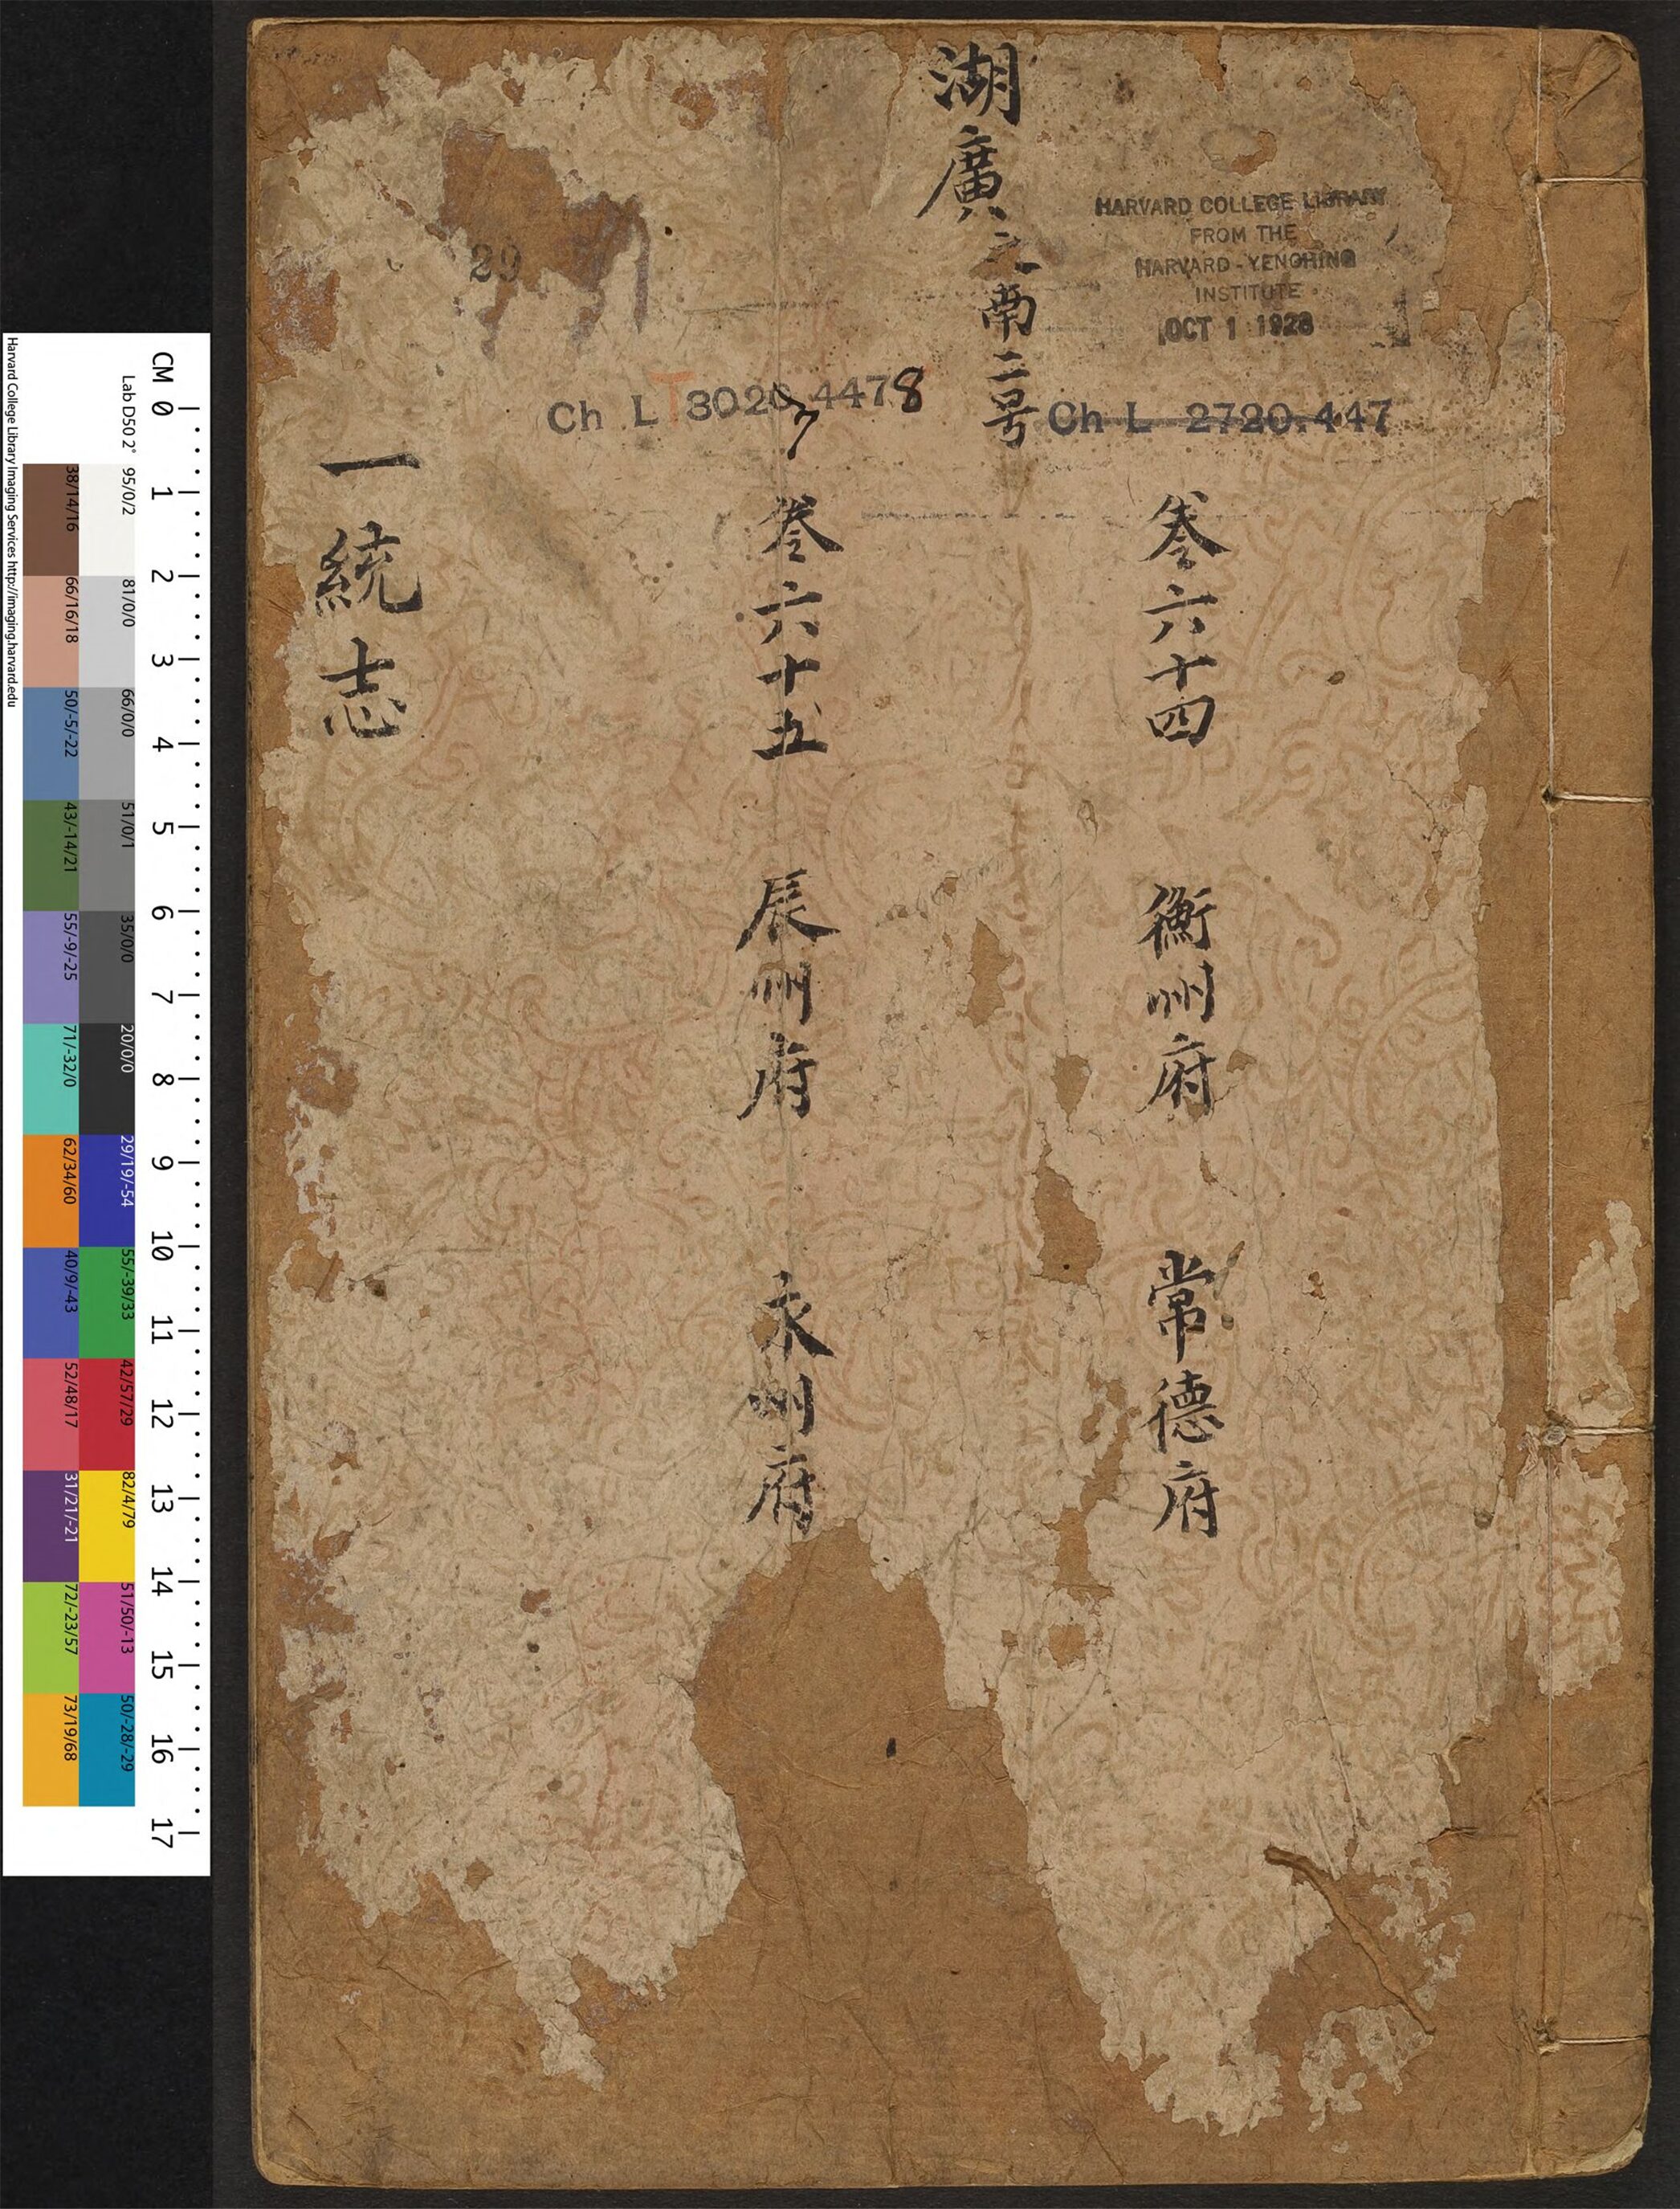 湖廣之南二号
HARVARD COLLEGE LIBRARY
FROM THE
HARVARD-YENCHING
INSTITUTE
OCT 1 1928
Ch L 2720.447
Ch L T 3020.4478
7
29
卷六十四 衡州府 常德府
卷六十五 辰州府 永州府
一統志
CM 0 1 2 3 4 5 6 7 8 9 10 11 12 13 14 15 16 17
Lab D50 2° 95/0/2 81/0/0 66/0/0 51/0/1 35/0/0 20/0/0 29/19/-54 55/-39/33 42/57/29 82/4/79 51/50/-13 50/-28/-29
38/14/16 66/16/18 50/-5/-22 43/-14/21 55/-9/-25 71/-32/0 62/34/60 40/9/-43 52/48/17 31/21/-21 72/-23/57 73/19/68
Harvard College Library Imaging Services http://imaging.harvard.edu